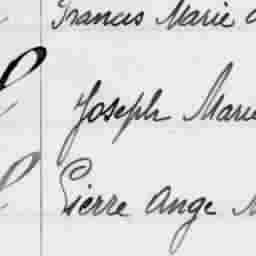 Francis Marie
Joseph Marie
Pierre Ange